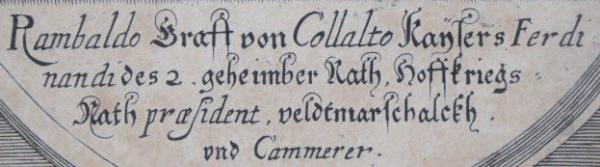 Rambaldo Graff von Collalto Kaÿsers Ferdi
nandi des 2. geheimber Rath, Hoffkriegs =
Rath præsident, veldtmarschalckh.
vnd Cammerer.